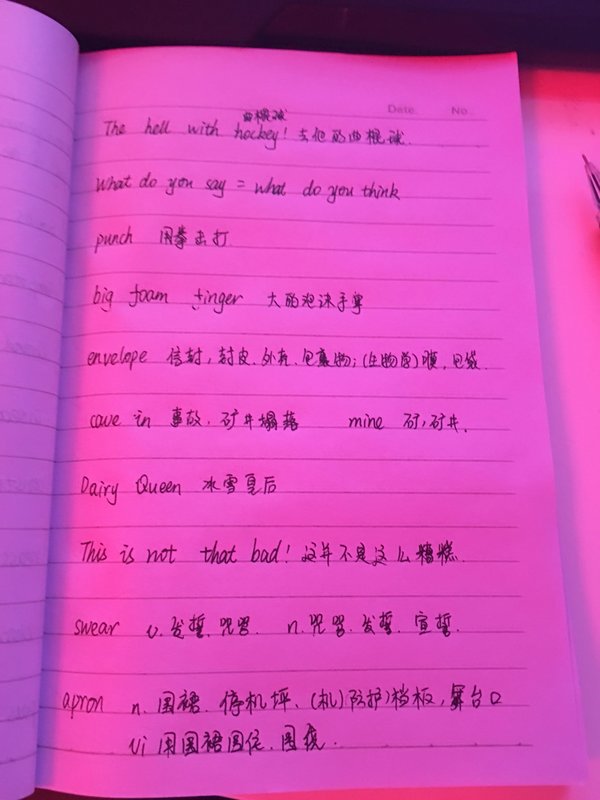 Date No
曲棍球
The hell with hockey! 去他的曲棍球.
What do you say = what do you think
punch 用拳击打
big foam finger 大的泡沫手掌
envelope 信封, 封皮, 外壳, 包裹物; (生物学)膜, 包袋.
cave in 事故, 矿井塌落 mine 矿, 矿井.
Dairy Queen 冰雪皇后
This is not that bad! 这并不是这么糟糕.
swear v. 发誓, 咒骂. n. 咒骂. 发誓. 宣誓.
apron n. 围裙. 停机坪、(机)防护档板, 舞台口
vi 用围裙围住. 围绕.